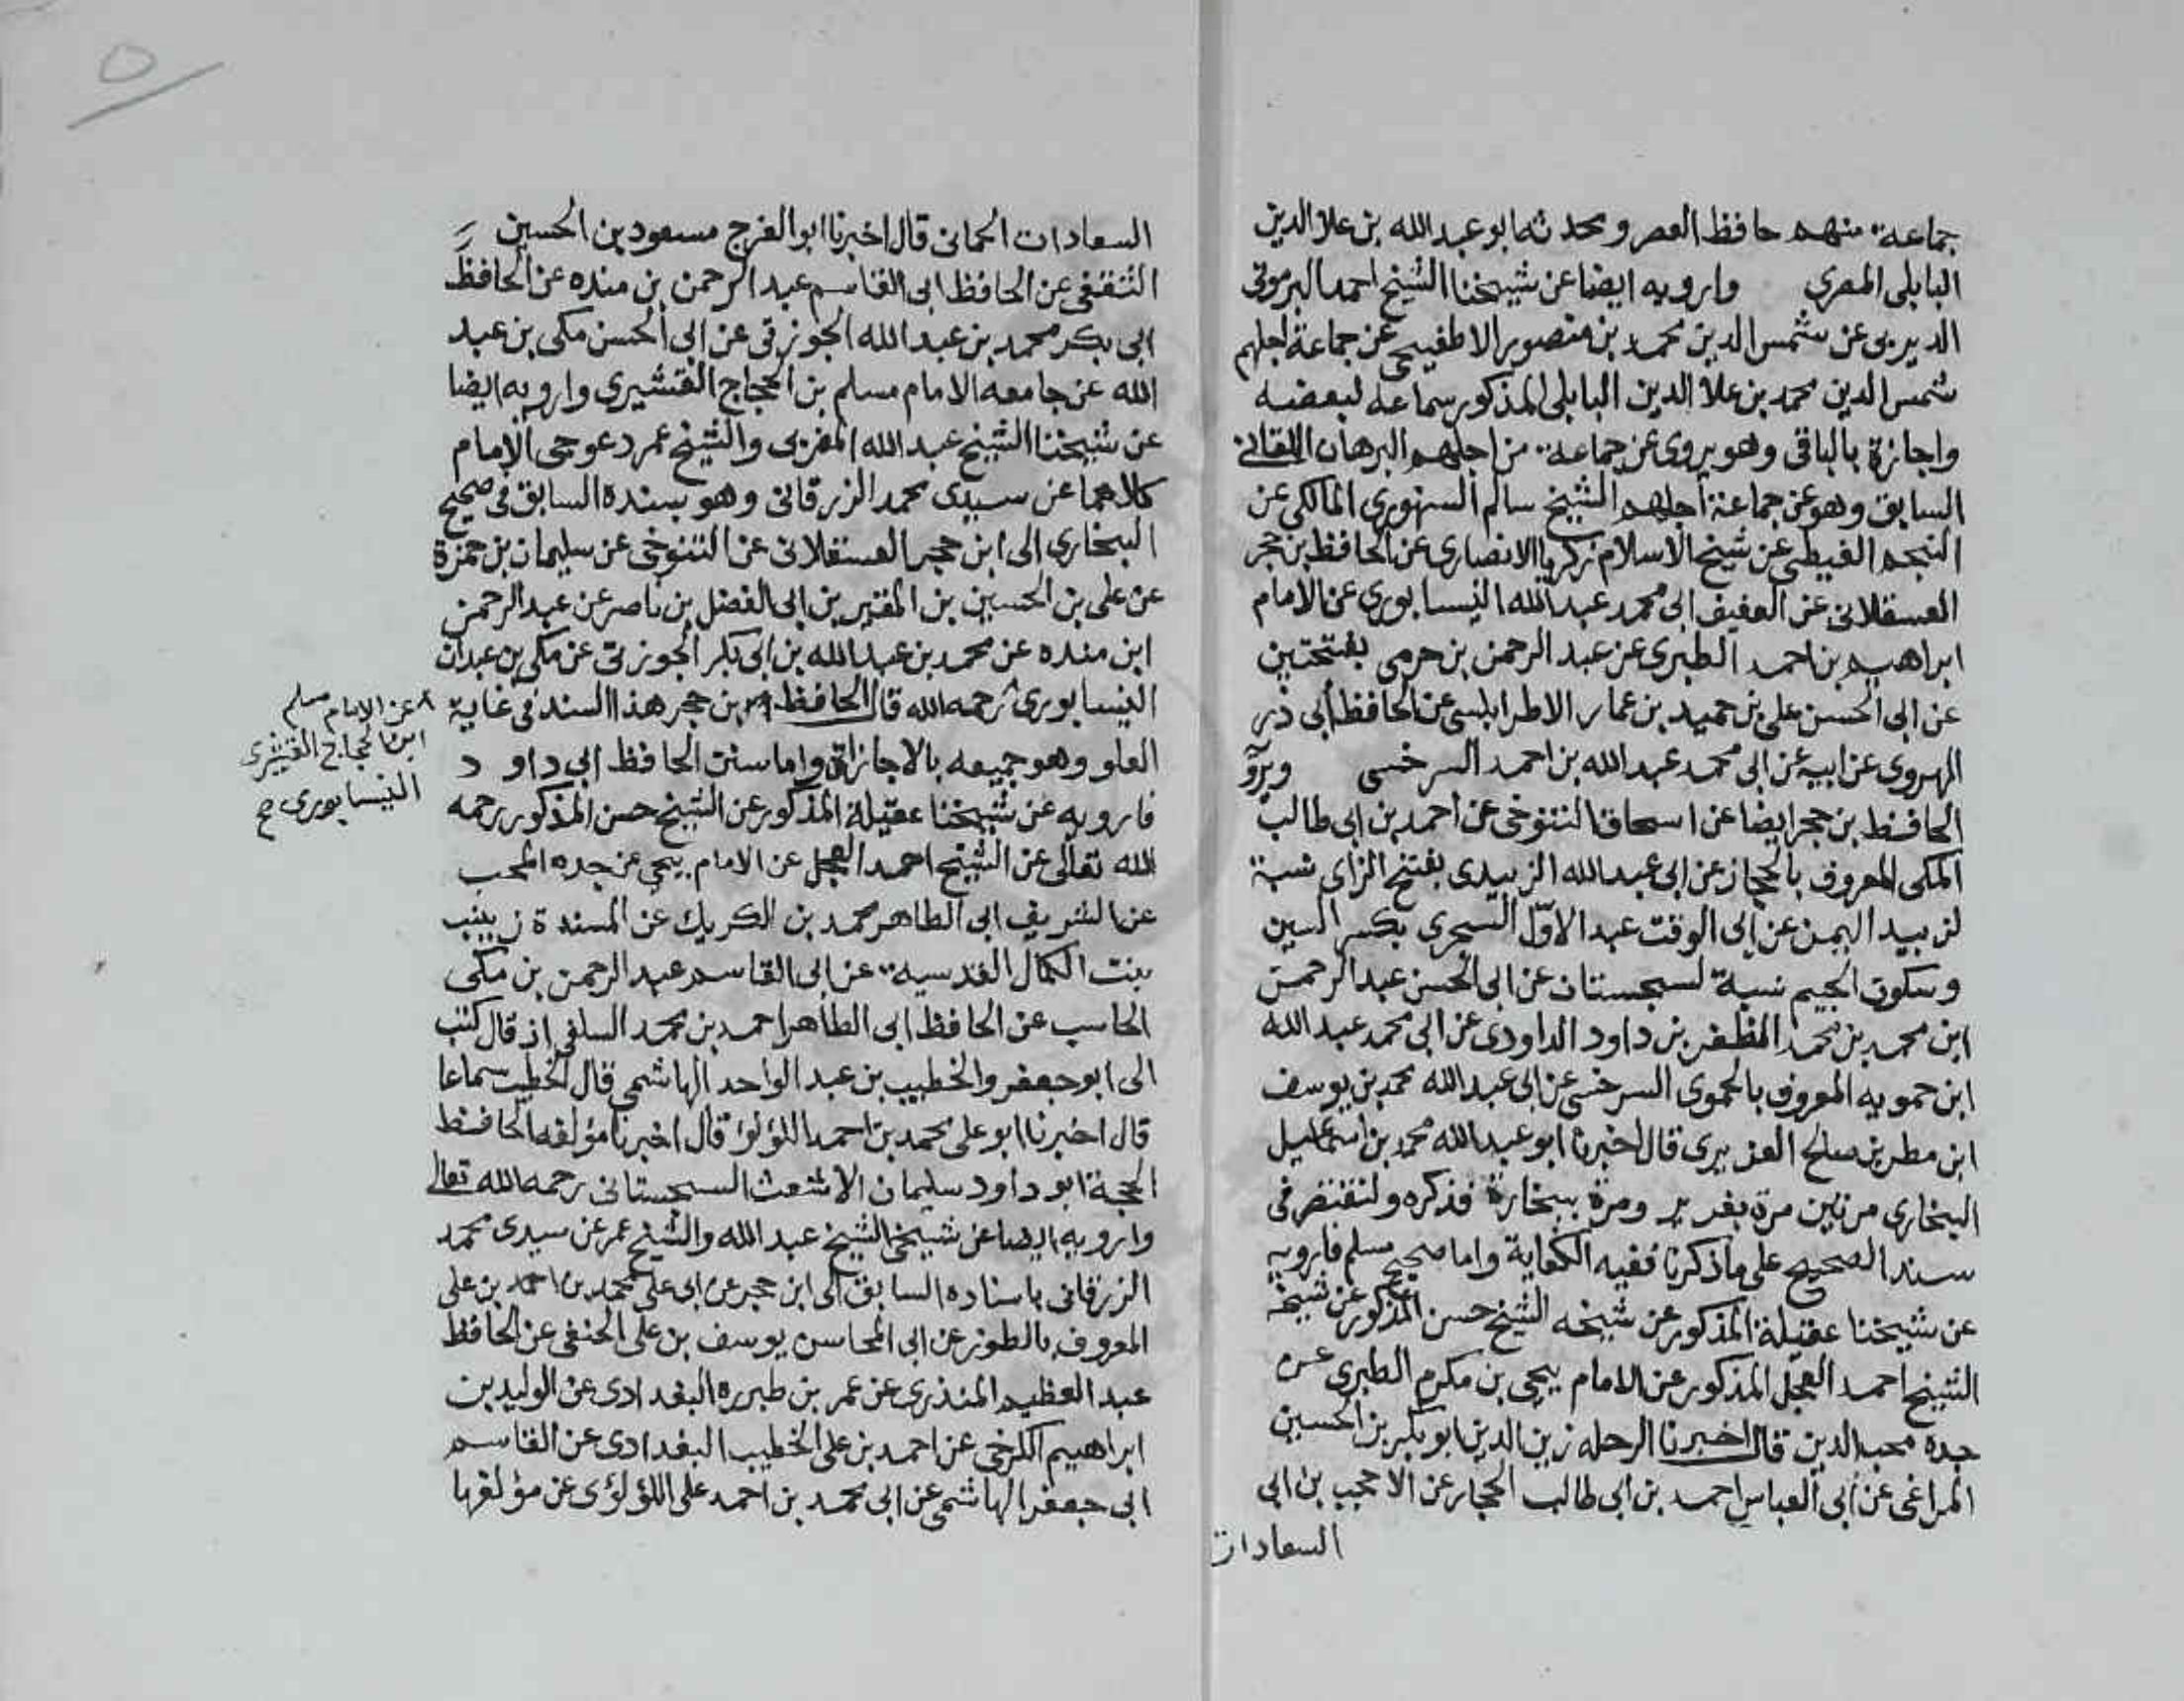 جماعة منهم حافظ العصر ومحدثه ابو عبد الله بن علا الدين
البابلى المصري وارويه ايضا عن شيخنا الشيخ احمد البرموتى
الديربى عن شمس الدين محمد بن منصور الاطفيحى عن جماعة اجلهم
شمس الدين محمد بن علا الدين البابلى المذكور سماعه لبعضه
واجازة بالباقى وهو يروى عن جماعة من اجلهم البرهان اللقانى
السابق وهو عن جماعة اجلهم الشيخ سالم السنهوري المالكى عن
النجم الغيطى عن شيخ الاسلام زكريا الانصارى عن الحافظ بن حجر
العسقلانى عن العفيف ابى محمد عبد الله النيسابورى عن الامام
ابراهيم بن احمد الطبرى عن عبد الرحمن بن حرمى بفتحتين
عن ابى الحسن على بن حميد بن عمار الاطرابلسى عن الحافظ أبى ذر
الهروى عن ابيه عن ابى محمد عبد الله بن احمد السرخسى ويرو
الحافظ بن حجر ايضا عن اسحاق التنوخى عن احمد بن ابى طالب
المكى المعروف بالحجاز عن ابى عبد الله الزبيدى بفتح الزاى نسبة
لزبيد اليمن عن ابى الوقت عبد الاوّل السجرى بكسر السين
وسكون الجيم نسبة لسجستان عن ابى الحسن عبد الرحمن
ابن محمد بن محمد المظفر بن داود الداودى عن ابى محمد عبد الله
ابن حمويه المعروف بالحموى السرخسى عن ابى عبد الله محمد بن يوسف
ابن مطر بن صالح الفزيرى قال اخبرنا ابو عبد الله محمد بن اسماعيل
البخارى مرتين مرة بفرير ومرة ببخارة فذكره ولنقتصر فى
سند الصحيح على ما ذكرنا ففيه الكفاية واما صحيح مسلم فارويه
عن شيخنا عقيلة المذكور عن شيخه الشيخ حسن المذكور عن شيخه
الشيخ احمد العجل المذكور عن الامام يحيى بن مكرم الطبرى عن
جده محب الدين قال اخبرنا الرحله زين الدين ابو بكر بن الحسين
المراغى عن أبى العباس احمد بن ابى طالب الحجار عن الاحجب بن ابى
السعادات
السعادات الحمانى قال اخبرنا ابو الفرج مسعود بن الحسين
الثقفى عن الحافظ ابى القاسم عبد الرحمن بن منده عن الحافظ
ابى بكر محمد بن عبد الله الجوزقى عن ابى الحسن مكى بن عبد
الله عن جامعه الامام مسلم بن الحجاج القشيرى وارويه ايضا
عن شيخنا الشيخ عبد الله المغربى والشيخ عمر دعوجى الامام
كلاهما عن سيدى محمد الزرقانى وهو بسنده السابق فى صحيح
البخارى الى ابن حجر العسقلانى عن التنوخى عن سليمان بن حمزة
عن على بن الحسين بن المقير بن ابى الفضل بن ناصر عن عبد الرحمن
ابن منده عن محمد بن عبد الله بن ابى بكر الجوزقى عن مكى بن عبدان
النيسابورى رحمه الله قال الحافظ بن حجر هذا السند فى غاية
العلو وهو جميعه بالاجازة واما سنن الحافظ ابى داود
فارويه عن شيخنا عقيلة المذكور عن الشيخ حسن المذكور رحمه
الله تعالى عن الشيخ احمد العجل عن الامام يحيى عن جده المحب
عن الشريف ابى الطاهر محمد بن الكريك عن المسندة زينب
بنت الكمال القدسية عن ابى القاسم عبد الرحمن بن مكى
الحاسب عن الحافظ ابى الطاهر احمد بن محمد السلفى اذ قال كتب
الى ابو جعفر والخطيب بن عبد الواحد الهاشمى قال الخطيب سماعا
قال اخبرنا ابو على محمد بن احمد اللؤلؤ قال اخبرنا مؤلفه الحافظ
الحجة ابو داود سليمان الاشعث السجستانى رحمه الله تعالى
وارويه ايضا عن شيخى الشيخ عبد الله والشيخ عمر عن سيدى محمد
الزرقانى باسناده السابق الى ابن حجر عن ابى على محمد بن احمد بن على
المعروف بالطوز عن ابى المحاسن يوسف بن على الحنفى عن الحافظ
عبد العظيم المنذرى عن عمر بن طبرره البغدادى عن الوليد بن
ابراهيم الكرخى عن احمد بن على الخطيب البغدادى عن القاسم
ابى جعفر الهاشمى عن ابى محمد بن احمد على اللؤلؤى عن مؤلفها
عن الامام مسلم
ابن الحجاج القشيرى
النيسابورى صح
٥